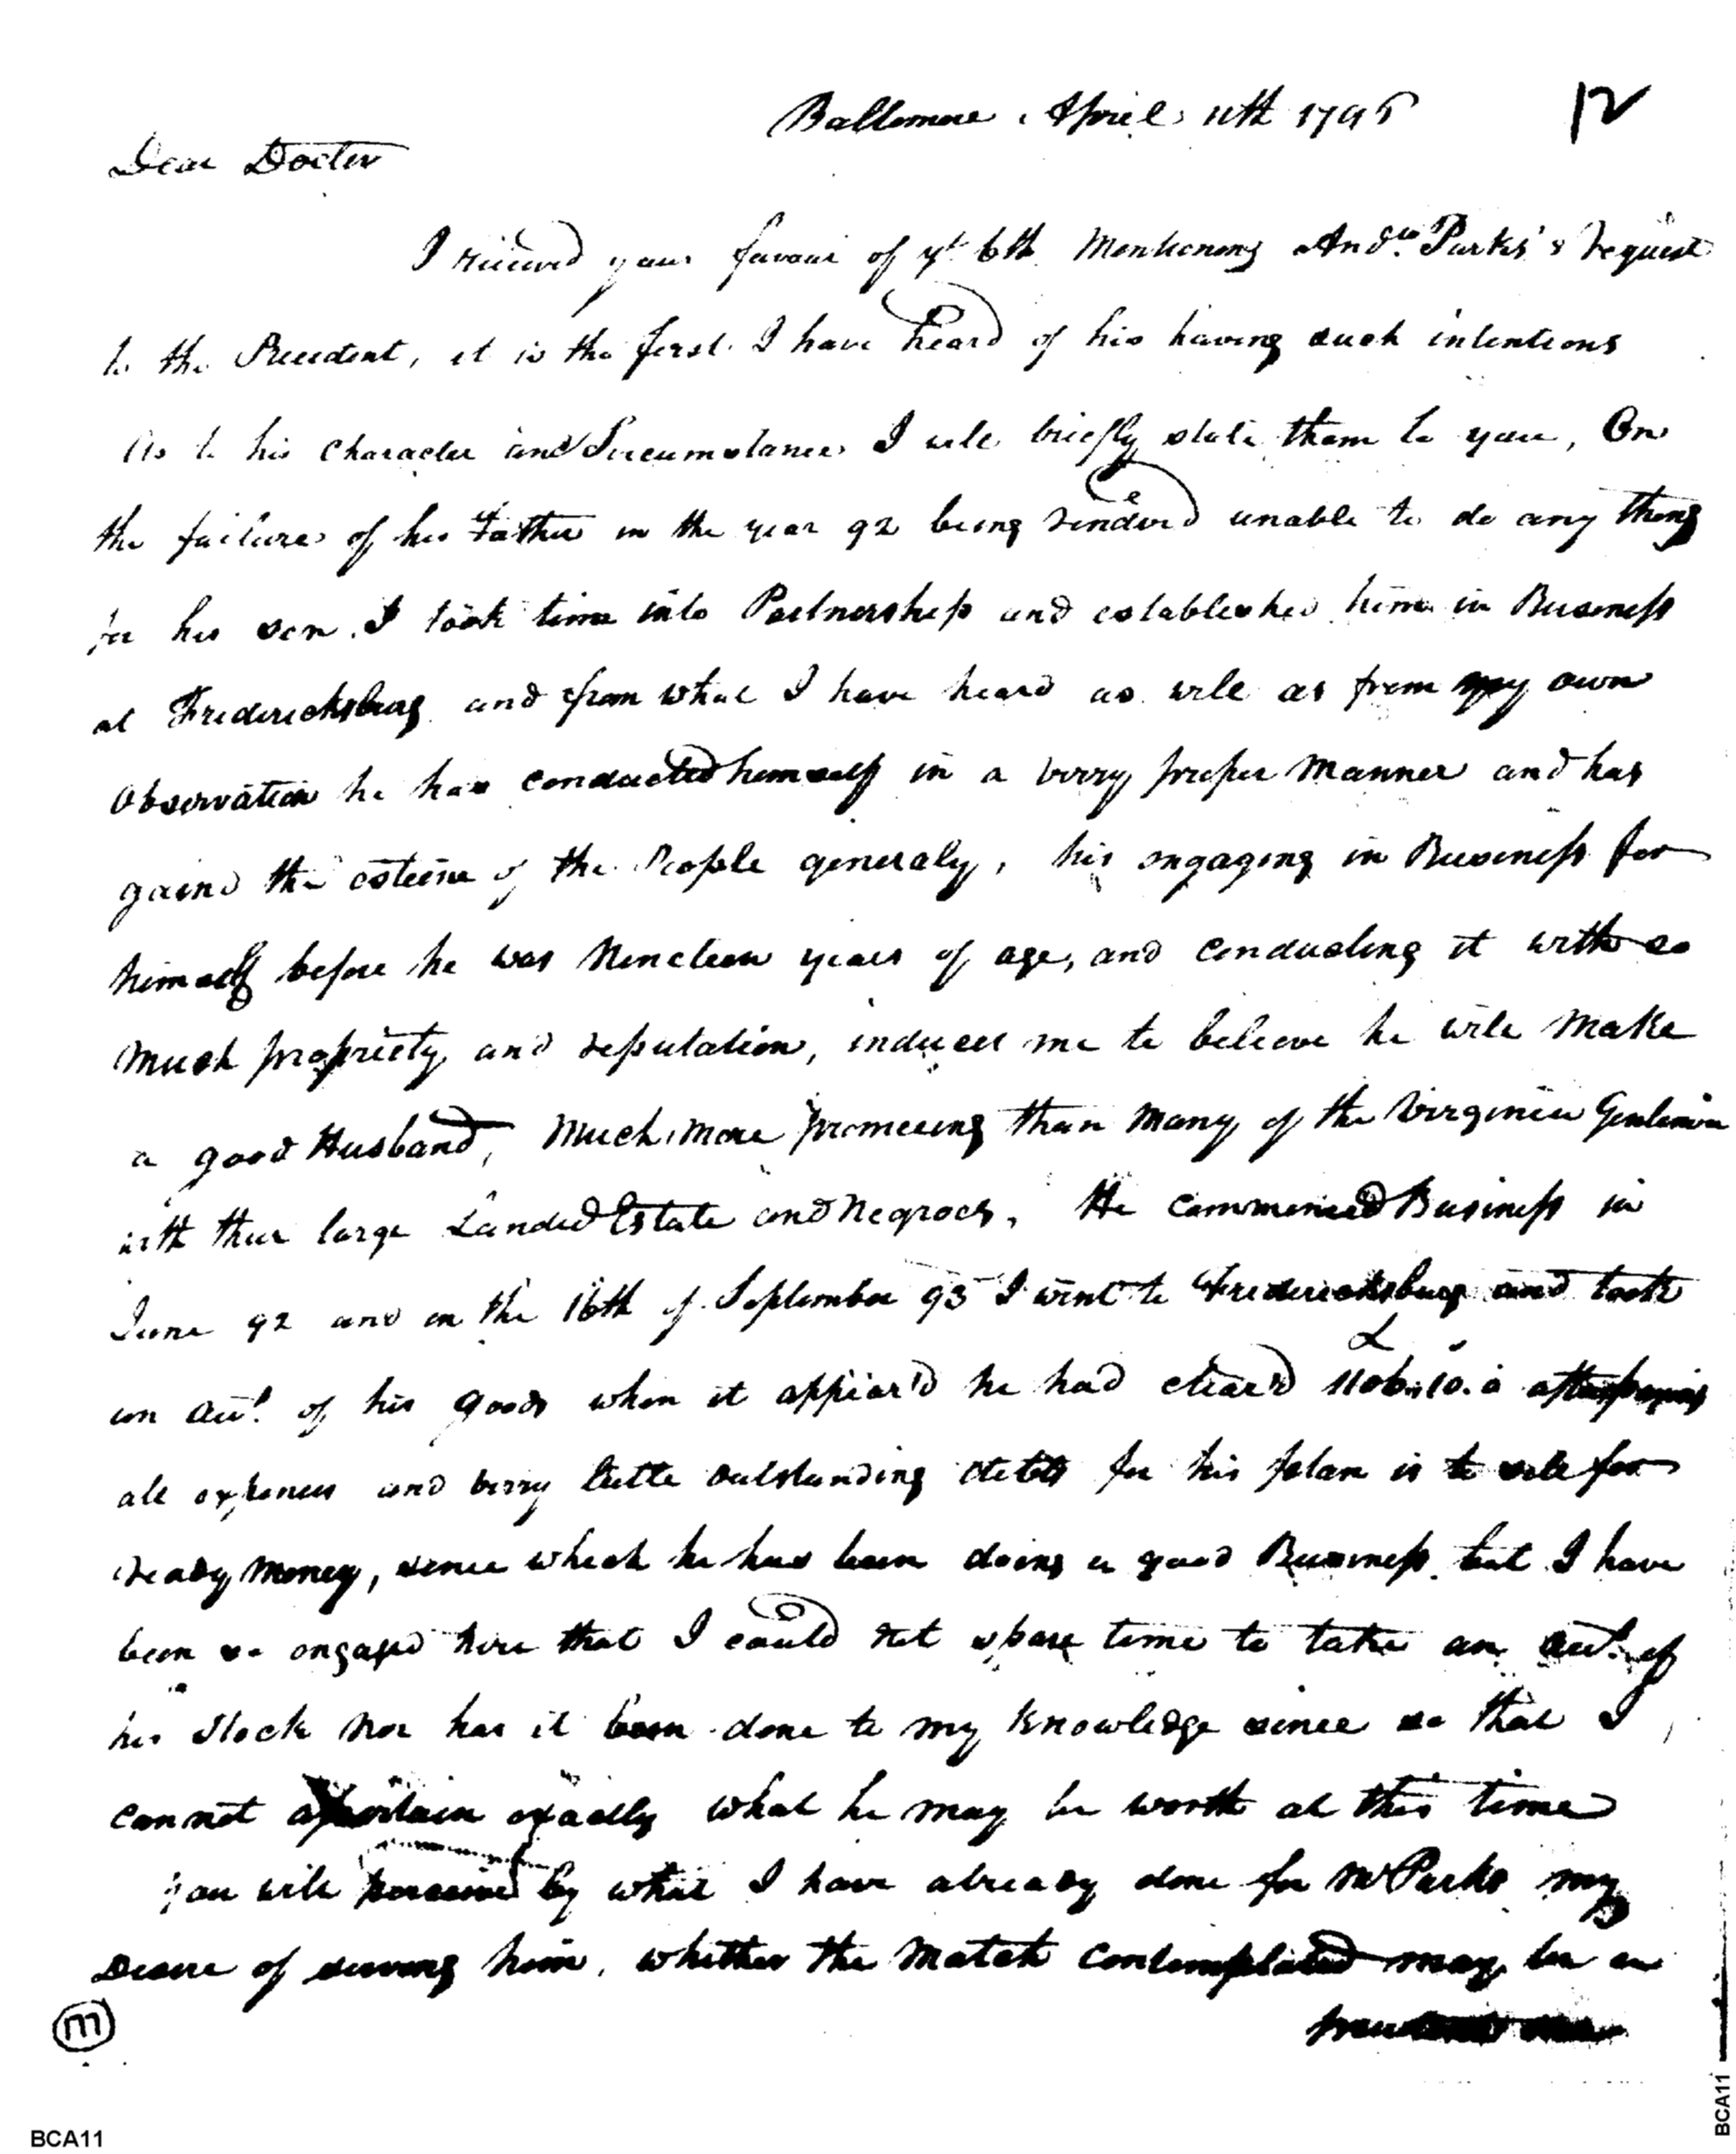 12
Baltemore April 11th 1795
Dear Docter
I received your favour of ye 6th Mentioning Andw. Parks's request
to the President, it is the first I have heard of his having such intentions
As to his Character and Sircumstances I will briefly state them to you, On
the failure of his Father in the year 92 being renderd unable to do any thing
for his son. I took him into Partnership and established him in Business
at Fredericksburg and from what I have heard as will as from my own
Observation he has conducted himself in a verry proper Manner and has
gaind the esteeme of the People generaly, his engaging in Business for
himself before he was Nineteen years of age, and conducting it with so
Much propriety and reputation, induces me to believe he will Make
a good Husband, Much more promiseing than Many of the Virginia Gentlemen
with their large Landed Estate and Negroes, He commenced Business in
June 92 and on the 16th of September 93 I went to Fredericksburg and took
an Act. of his goods when it appear'd he had clear'd £1106.10.0 after paying
all expences and verry little outstanding debts for his plan is to sell for
ready Money, since which he has been doing a good Business but I have
been so engaged here that I could not spare time to take an Act. of
his Stock nor has it been done to my Knowledge since so that I
cannot ascertain exactly what he may be worth at this time
you will perceive by what I have already done for Mr Parks my
Desire of serving him, whether the Match contemplated may be a
m
BCA11
BCA11